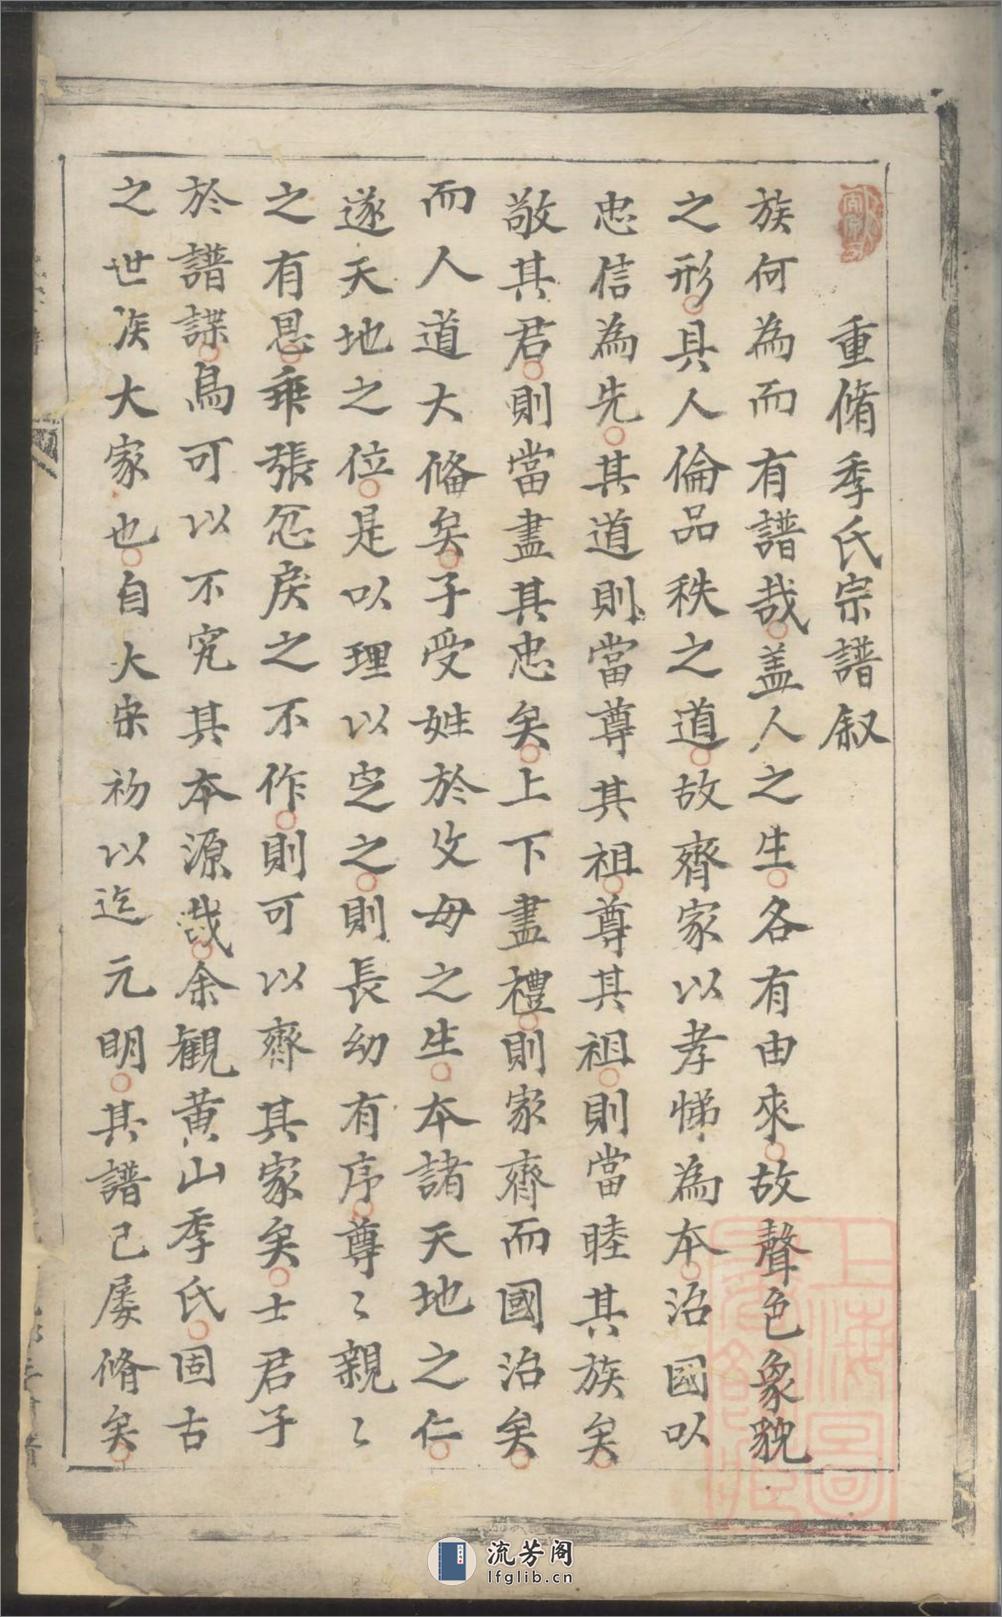 重脩季氏宗譜叙
族何為而有譜哉盖人之生各有由來故聲色象貌
之形具人倫品秩之道故齊家以孝悌為本治國以
忠信為先其道則當尊其祖尊其祖則當睦其族矣
敬其君則當盡其忠矣上下盡禮則家齊而國治矣
而人道大俻矣子受姓於父母之生本諸天地之仁
遂天地之位是以理以定之則長幼有序尊〻親〻
之有恩乖張忿戾之不作則可以齊其家矣士君子
於譜諜烏可以不究其本源哉余觀黄山季氏固古
之世族大家也自大宋初以迄元明其譜已屡脩矣
上海圖書館藏
流芳阁
lfglib.cn